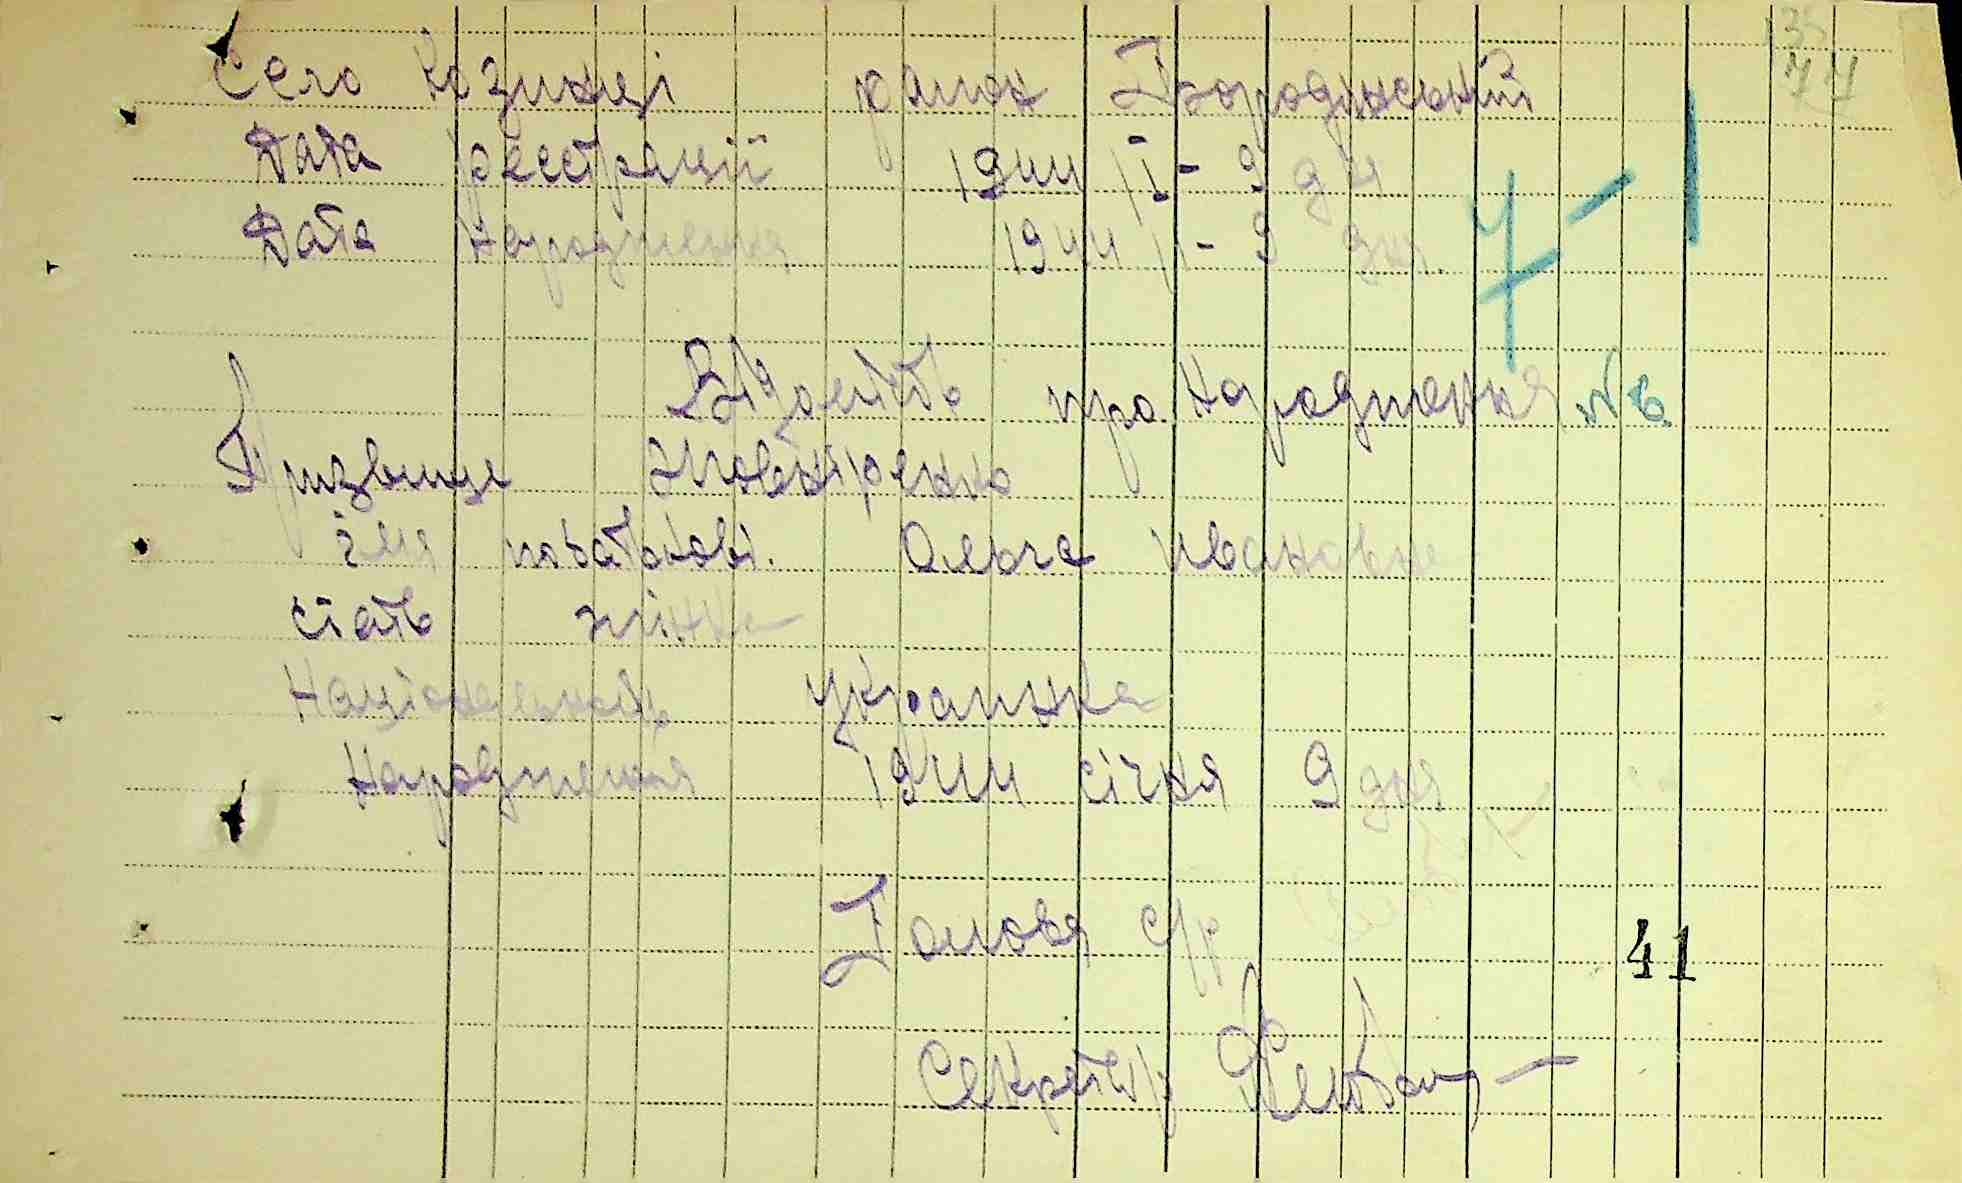 Село Козинці район Бородянський
Дата реєстрації 1944 II - 9 дн
Дата народження 1944 II - 9 дня.
7-1
Відомість про народження № 6.
Призвище Жовніренко
імя побатькові. Ольга Ивановна
Стать жінка
Національність украинка
Народження 1944 січня 9 дня
Голова с/р
41
Секретар